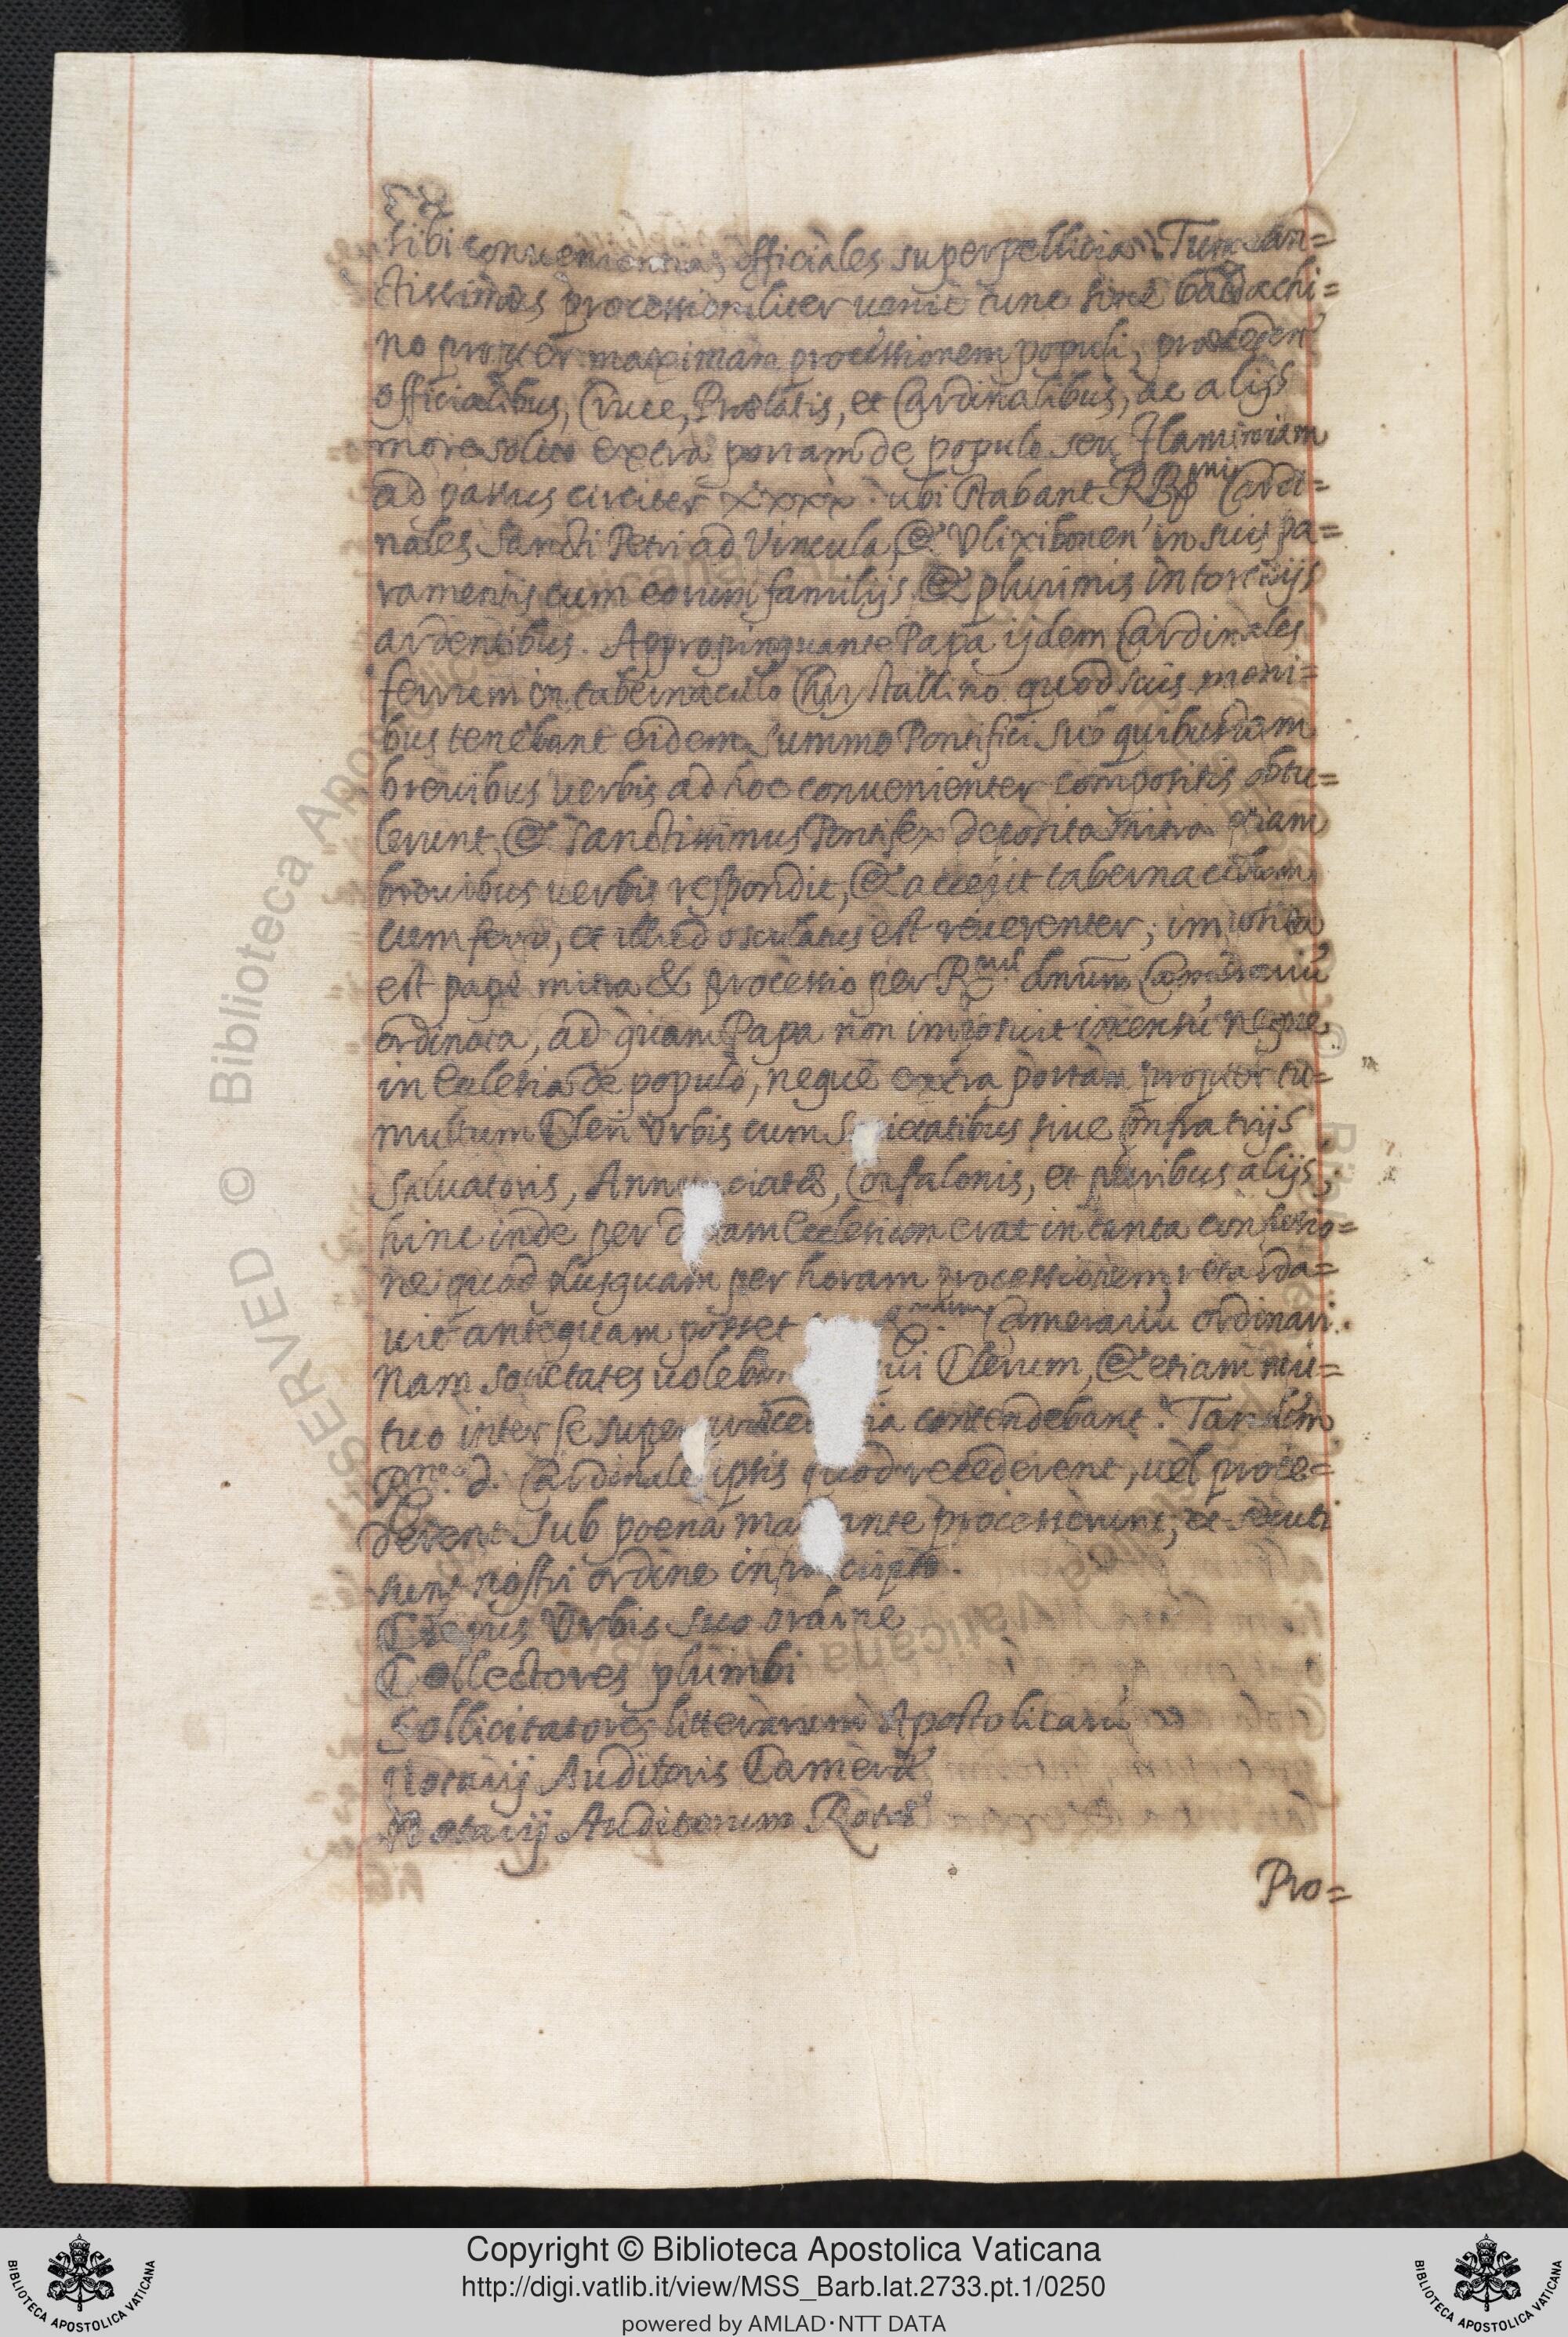 sibi convenientias officiales superpellicia. Tum San=
ctissimus processionaliter venit tunc sine baldachi=
no propter maximam processionem populi, præceden'
officialibus, Cruce, Prælatis, et Cardinalibus, ac alijs
more solito extra portam de populo seu Flaminiam
ad passus circiter xxxx. ubi stabant RR.mi Cardi=
nales Sancti Petri ad Vincula, & Vlixibonen' in suis pa=
ramentis cum eorum familijs & plurimis intorcitijs
ardentibus. Appropinquante Papa ijdem Cardinales
ferrum in tabernaculo Chrystallino quod suis mani=
bus tenebant eidem summo Pontifici sub quibusdam
brevibus verbis ad hoc convenienter compositis obtu=
lerunt, & Sanctissimus Pontifex deposita mitra etiam
brevibus verbis respondit, & accepit tabernaculum
cum ferro, et illud osculatus est reverenter; imposita
est papæ mitra & processio per R.mum dnum Camerariũ
ordinata, ad quam Papa non imposuit incensũ neque
in Ecclesia de populo, neque extra portam propter tu=
multum Cleri Vrbis cum S ietatibus sive Confratrijs
Salvatoris, Annu ciatæ, Confalonis, et pluribus alijs,
hinc inde per d am Ecclesiam erat in tanta confusio=
ne quod plusquam per horam processionem retarda=
vit antequam posset Camerariũ ordinari.
Nam societates voleban ui Clerum, & etiam mu=
tuo inter se super præced ia contendebant. Tandem
R.mo d. Cardinale ipsis quod recederent, vel proce=
derent sub poena ma ante processerunt, et secuti
sunt nostri ordine infra scripto.
Clerus Vrbis suo ordine
Collectores plumbi
Sollicitatores litterarum Apostolicarũ
Notarij Auditoris Cameræ
Notarij Auditorum Rotæ
Pro=
Copyright © Biblioteca Apostolica Vaticana
http://digi.vatlib.it/view/MSS_Barb.lat.2733.pt.1/0250
powered by AMLAD·NTT DATA
BIBLIOTECA APOSTOLICA VATICANA
BIBLIOTECA APOSTOLICA VATICANA